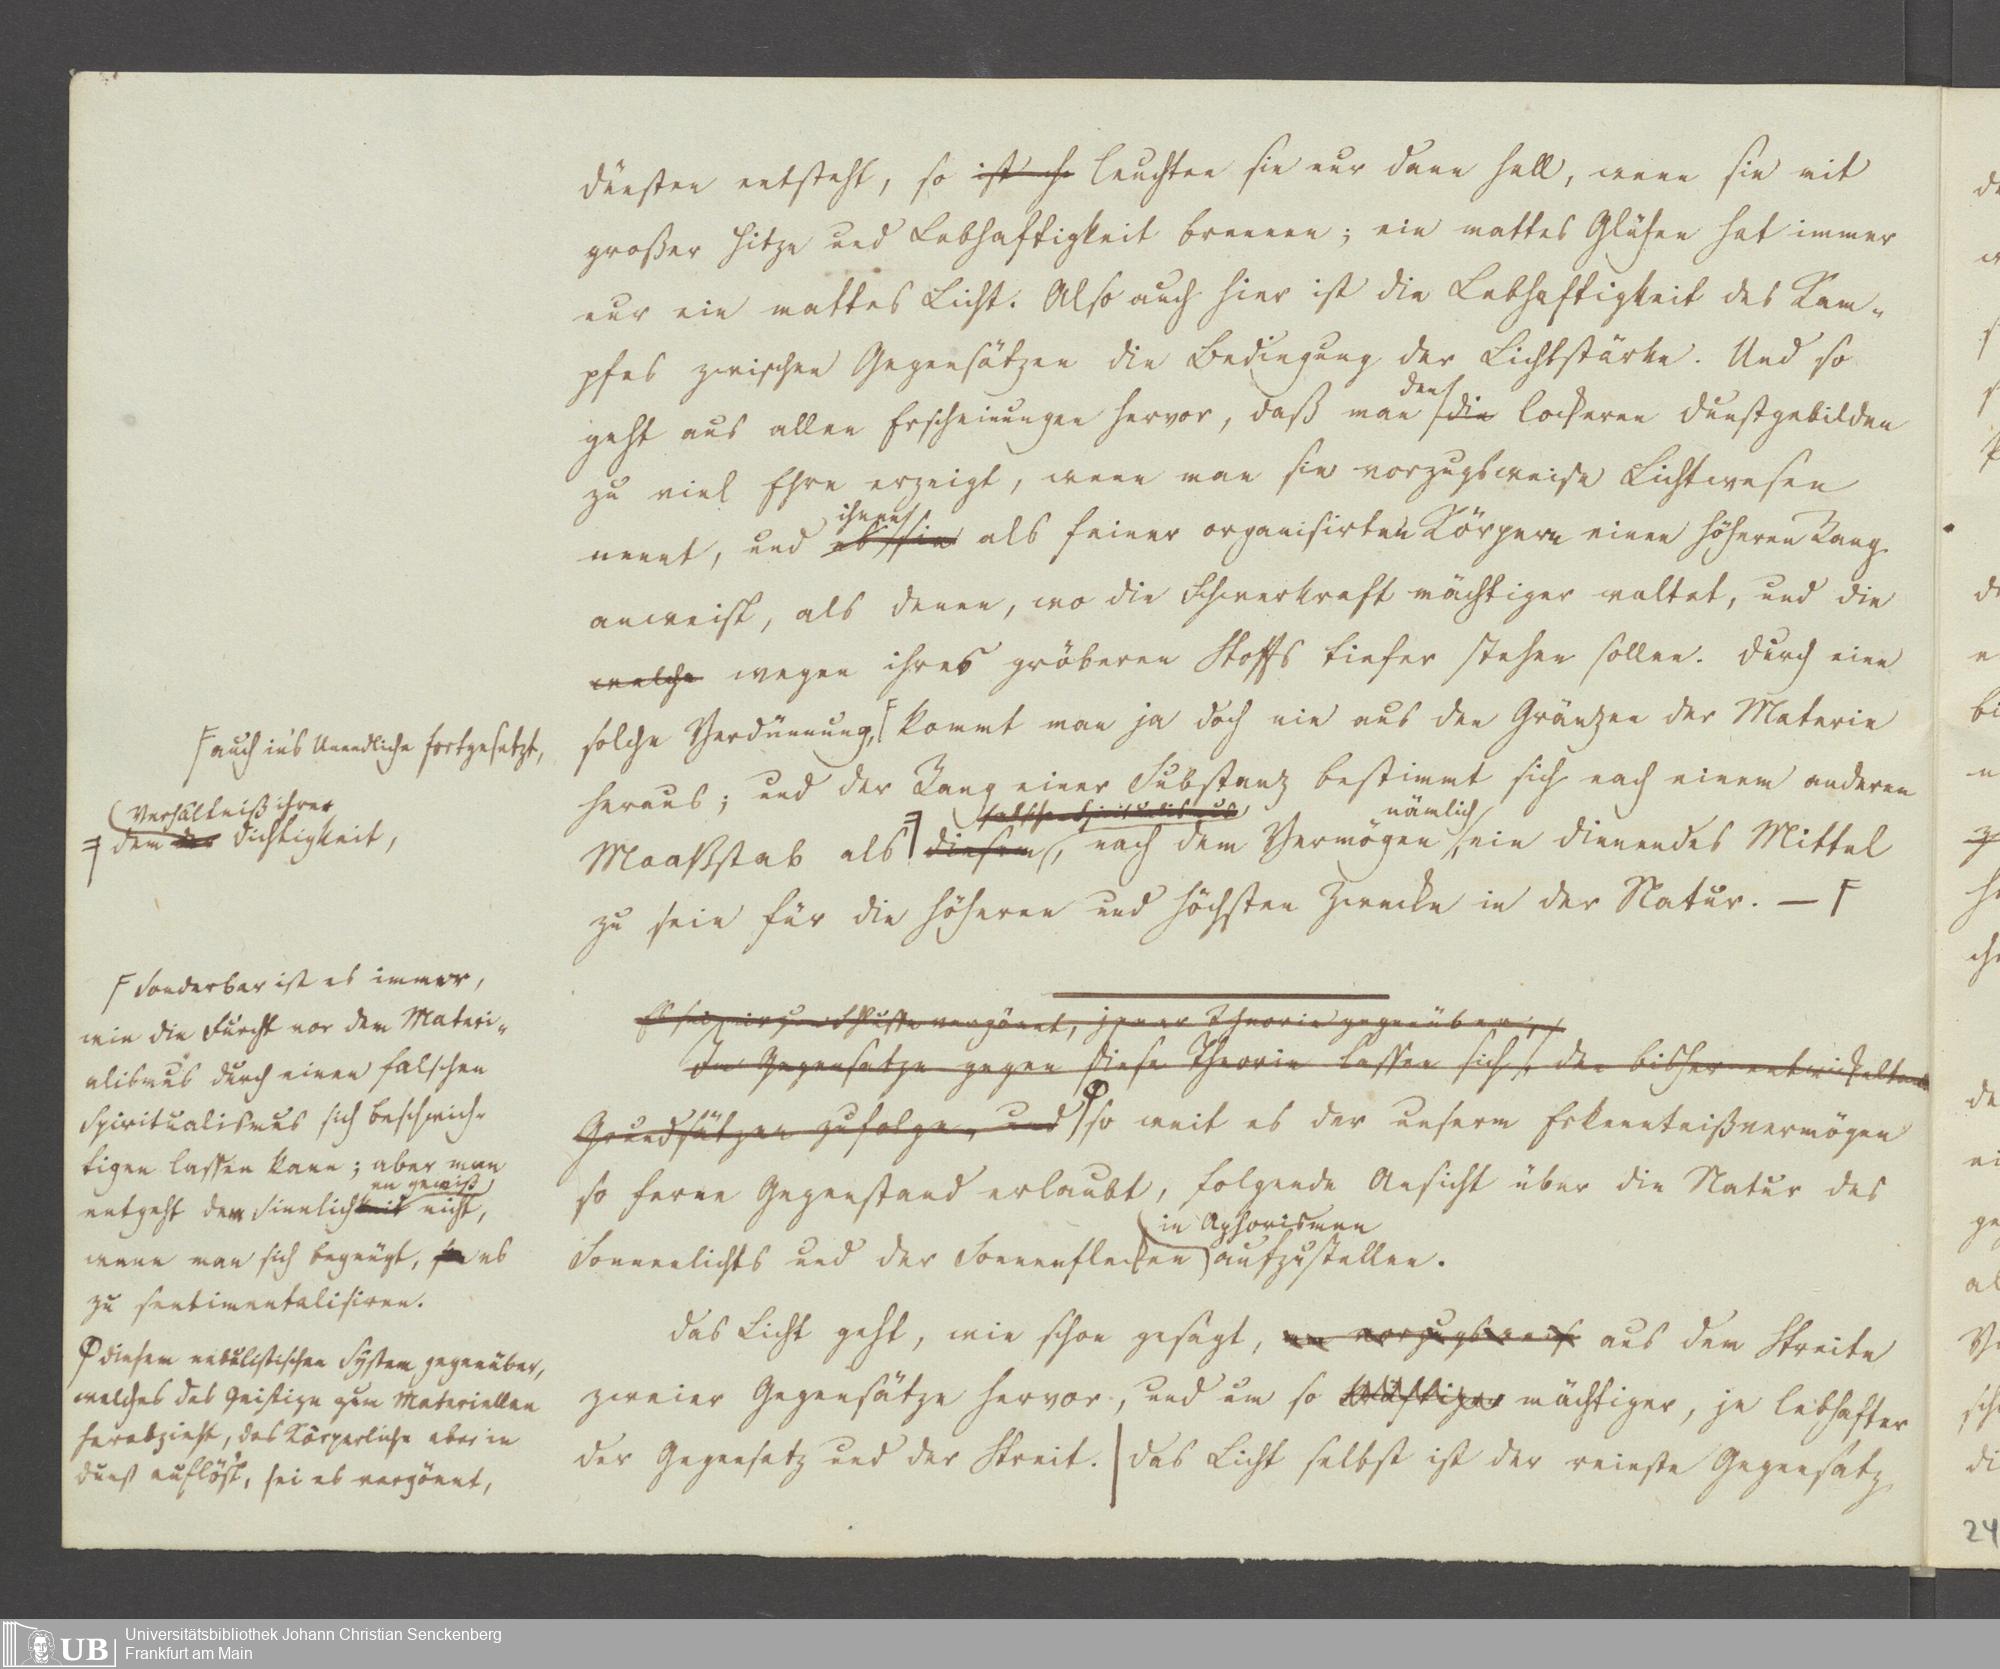 dünsten entsteht, so ist sh leuchten sie nur dann hell, wenn sie mit
großer Hitze und Lebhaftigkeit brennen; ein mattes Glühen hat immer
nur ein mattes Licht. Also auch hier ist die Lebhaftigkeit des Kam-
pfes zwischen Gegensätzen die Bedingung der Lichtstärke. Und so
den
geht aus allen Erscheinungen hervor, daß man die lockeren Dunstgebilden
zu viel Ehre erzeigt, wenn man sie vorzugsweise Lichtwesen
ihnen
nennt, und sie als feiner organisirten Körpern einen höheren Rang
anweist, als denen, wo die Schwerkraft mächtiger waltet, und die
welche wegen ihres gröberen Stoffs tiefer stehen sollen. Durch eine
solche Verdünnung, kommt man ja doch nie aus den Gränzen der Materie
heraus; und der Rang einer Substanz bestimmt sich nach einem anderen
falsche Spiritualismus nämlich
Maaßstab als diesem, nach dem Vermögen ein dienendes Mittel
zu sein für die höheren und höchsten Zwecke in der Natur. —
Es sei mir zum Schlusse vergönnt, jener Theorie gegenüber,
Im Gegensatze gegen diese Theorie lassen sich, den bisher entwickelten
Grundsätzen zufolge, und so weit es der unserm Erkenntnißvermögen
so ferne Gegenstand erlaubt, folgende Ansicht über die Natur des
in Aphorismen
Sonnenlichts und der Sonnenflecken aufzustellen.
Das Licht geht, wie schon gesagt, vorzugsweis aus dem Streite
zweier Gegensätze hervor, und um so kräftiger mächtiger, je lebhafter
der Gegensatz und der Streit. Das Licht selbst ist der reinste Gegensatz
auch in's Unendliche fortgesetzt,
Verhältniß ihrer
dem der Dichtigkeit,
Sonderbar ist es immer,
wie die Furcht vor dem Materi-
alismus durch einen falschen
Spiritualismus sich beschwich-
tigen lassen kann; aber man
en gewiß
entgeht dem Sinnlichkeit nicht,
wenn man sich begnügt, es
zu sentimentalisiren.
diesem nebulistischen System gegenüber,
welches das Geistige zum Materiellen
herabzieht, das Körperliche aber in
Dunst auflöst, sei es vergönnt,
24
UB
Universitätsbibliothek Johann Christian Senckenberg
Frankfurt am Main